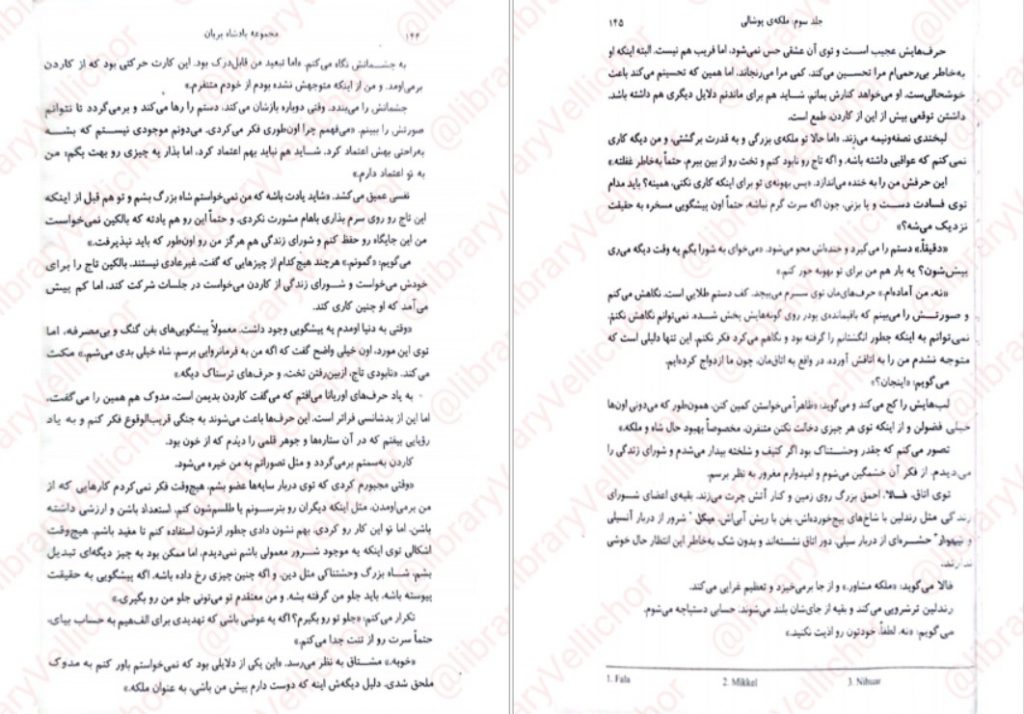 مجموعه پادشاه پریان
۱۴۴
به چشمانش نگاه می‌کنم. «اما تبعید من قابل‌درک بود. این کارت حرکتی بود که از کاردن
برمی‌اومد. و من از اینکه متوجهش نشده بودم از خودم متنفرم.»
چشمانش را می‌بندد. وقتی دوباره بازشان می‌کند، دستم را رها می‌کند و برمی‌گردد تا نتوانم
صورتش را ببینم. «می‌فهمم چرا اون‌طوری فکر می‌کردی. می‌دونم موجودی نیستم که بشه
به‌راحتی بهش اعتماد کرد. شاید هم نباید بهم اعتماد کرد، اما بذار یه چیزی رو بهت بگم: من
به تو اعتماد دارم.»
نفسی عمیق می‌کشد. «شاید یادت باشه که من نمی‌خواستم شاه بزرگ بشم و تو هم قبل از اینکه
این تاج رو روی سرم بذاری باهام مشورت نکردی. و حتماً این رو هم یادته که بالکین نمی‌خواست
من این جایگاه رو حفظ کنم و شورای زندگی هم هرگز من رو اون‌طور که باید نپذیرفت.»
می‌گویم: «گمونم.» هرچند هیچ‌کدام از چیزهایی که گفت، غیرعادی نیستند. بالکین تاج را برای
خودش می‌خواست و شورای زندگی از کاردن می‌خواست در جلسات شرکت کند، اما کم پیش
می‌آمد که او چنین کاری کند.
«وقتی به دنیا اومدم یه پیشگویی وجود داشت. معمولاً پیشگویی‌های بفن گنگ و بی‌مصرفه، اما
توی این مورد، اون خیلی واضح گفت که اگه من به فرمانروایی برسم، شاه خیلی بدی می‌شم.» مکث
می‌کند. «نابودی تاج، ازبین‌رفتن تخت، و حرف‌های ترسناک دیگه.»
به یاد حرف‌های اوریانا می‌افتم که می‌گفت کاردن بدیمن است، مدوک هم همین را می‌گفت،
اما این از بدشانسی فراتر است. این حرف‌ها باعث می‌شوند به جنگی قریب‌الوقوع فکر کنم و به یاد
رؤیایی بیفتم که در آن ستاره‌ها و جوهر قلمی را دیدم که از خون بود.
کاردن به‌سمتم برمی‌گردد و مثل تصوراتم به من خیره می‌شود.
«وقتی مجبورم کردی که توی دربار سایه‌ها عضو بشم، هیچ‌وقت فکر نمی‌کردم کارهایی که از
من برمی‌اومدن، مثل اینکه دیگران رو بترسونم یا طلسم‌شون کنم، استعداد باشن و ارزشی داشته
باشن. اما تو این کار رو کردی. بهم نشون دادی چطور ازشون استفاده کنم تا مفید باشم. هیچ‌وقت
اشکالی توی اینکه یه موجود شرور معمولی باشم نمی‌دیدم، اما ممکن بود به چیز دیگه‌ای تبدیل
بشم، شاه بزرگ وحشتناکی مثل دین. و اگه چنین چیزی رخ داده باشه، اگه پیشگویی به حقیقت
پیوسته باشه، باید جلو من گرفته بشه. و من معتقدم تو می‌تونی جلو من رو بگیری.»
تکرار می‌کنم: «جلو تو رو بگیرم؟ اگه یه عوضی باشی که تهدیدی برای الف‌هیم به حساب بیای،
حتماً سرت رو از تنت جدا می‌کنم.»
«خوبه.» مشتاق به نظر می‌رسد. «این یکی از دلایلی بود که نمی‌خواستم باور کنم به مدوک
ملحق شدی. دلیل دیگه‌ش اینه که دوست دارم پیش من باشی، به عنوان ملکه.»
جلد سوم: ملکه‌ی پوشالی
۱۴۵
حرف‌هایش عجیب است و توی آن عشقی حس نمی‌شود، اما فریب هم نیست. البته اینکه او
به‌خاطر بی‌رحمی‌ام مرا تحسین می‌کند، کمی مرا می‌رنجاند، اما همین که تحسینم می‌کند باعث
خوشحالی‌ست. او می‌خواهد کنارش بمانم، شاید هم برای ماندنم دلایل دیگری هم داشته باشد.
داشتن توقعی بیش از این از کاردن، طمع است.
لبخندی نصفه‌ونیمه می‌زند. «اما حالا تو ملکه‌ی بزرگی و به قدرت برگشتی، و من دیگه کاری
نمی‌کنم که عواقبی داشته باشه. و اگه تاج رو نابود کنم و تخت رو از بین ببرم، حتماً به‌خاطر غفلته.»
این حرفش من را به خنده می‌اندازد. «پس بهونه‌ی تو برای اینکه کاری نکنی، همینه؟ باید مدام
توی فسادت دست و پا بزنی، چون اگه سرت گرم نباشه، حتماً اون پیشگویی مسخره به حقیقت
نزدیک می‌شه؟»
«دقیقاً.» دستم را می‌گیرد و خنده‌اش محو می‌شود. «می‌خوای به شورا بگم یه وقت دیگه می‌ری
پیش‌شون؟ یه بار هم من برای تو بهونه جور کنم.»
«نه. من آماده‌ام.» حرف‌های‌مان توی سرم می‌پیچد. کف دستم طلایی است. نگاهش می‌کنم
و صورتش را می‌بینم که باقیمانده‌ی پودر روی گونه‌هایش پخش شده. نمی‌توانم نگاهش نکنم.
نمی‌توانم به اینکه چطور انگشتانم را گرفته بود و نگاهم می‌کرد فکر نکنم. این تنها دلیلی است که
متوجه نشدم من را به اتاقش آورده. در واقع به اتاق‌مان، چون ما ازدواج کرده‌ایم.
می‌گویم: «اینجان؟»
لب‌هایش را کج می‌کند و می‌گوید: «ظاهراً می‌خواستن کمین کنن. همون‌طور که می‌دونی اون‌ها
خیلی فضولن و از اینکه توی هر چیزی دخالت نکنن متنفرن، مخصوصاً بهبود حال شاه و ملکه.»
تصور می‌کنم که چقدر وحشتناک بود اگر کثیف و شلخته بیدار می‌شدم و شورای زندگی را
می‌دیدم. از فکر آن خشمگین می‌شوم و امیدوارم مغرور به نظر برسم.
توی اتاق، فالا¹، احمق بزرگ روی زمین و کنار آتش چرت می‌زند. بقیه‌ی اعضای شورای
زندگی مثل رندلین با شاخ‌های پیچ‌خورده‌اش، بفن با ریش آبی‌اش، میکل² شرور از دربار آنسیلی
و نیهوار³ حشره‌ای از دربار سیلی، دور اتاق نشسته‌اند و بدون شک به‌خاطر این انتظار حال خوشی
ندارند.
فالا می‌گوید: «ملکه مشاور.» و از جا برمی‌خیزد و تعظیم غرایی می‌کند.
رندلین ترشرویی می‌کند و بقیه از جای‌شان بلند می‌شوند. حسابی دستپاچه می‌شوم.
می‌گویم: «نه، لطفاً. خودتون رو اذیت نکنید.»
1. Fala 2. Mikkel 3. Nihuar
@libraryVellichor